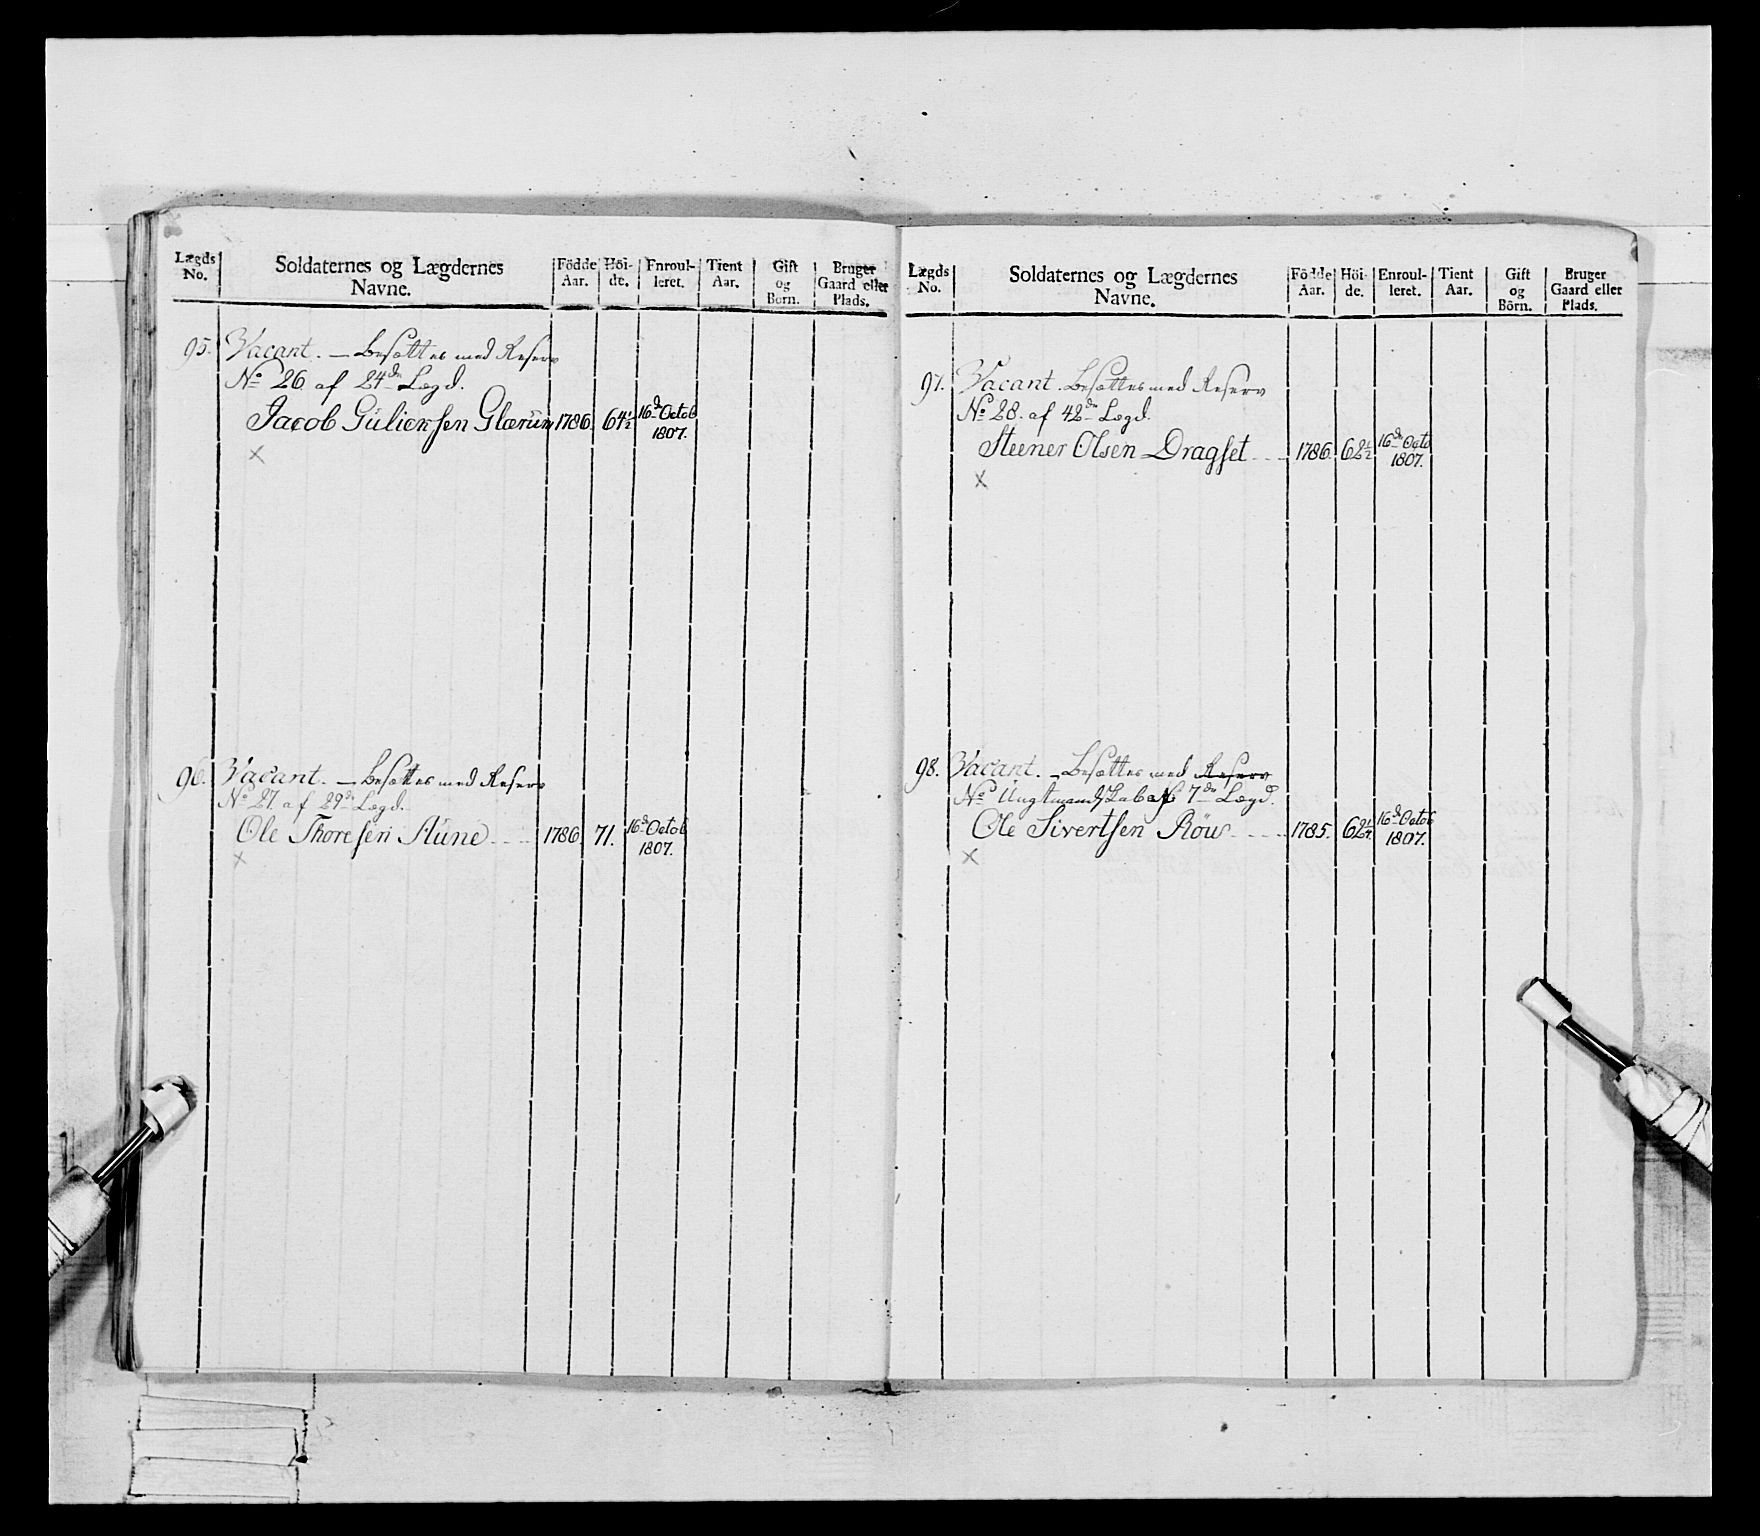 Lægds No. Soldaternes og Lægdernes Navne. Födde Aar. Höi-de. Enroul-leret. Tient Aar. Gift og Börn. Bruger Gaard eller Plads.
95. Vacant. – Besættes med Reserv
No 26. af 24de Lægd.
Jacob Gulichsen Glærum 1786. 64½ 16de Octob
1807.
×
96. Vacant. – Besættes med Reserv
No 27. af 29de Lægd.
Ole Thoresen Aune 1786. 71. 16de Octob
1807.
×
Lægds No. Soldaternes og Lægdernes Navne. Födde Aar. Höi-de. Enroul-leret. Tient Aar. Gift og Börn. Bruger Gaard eller Plads.
97. Vacant. Besættes med Reserv
No 28. af 42de Lægd.
Steener Olsen Dragset 1786. 62½ 16de Octo
1807.
×
98. Vacant. – Besættes med Reserv
No Ungtmandskab af 7de Lægd.
Ole Sivertsen Röus 1785. 16de Octob
1807.
×